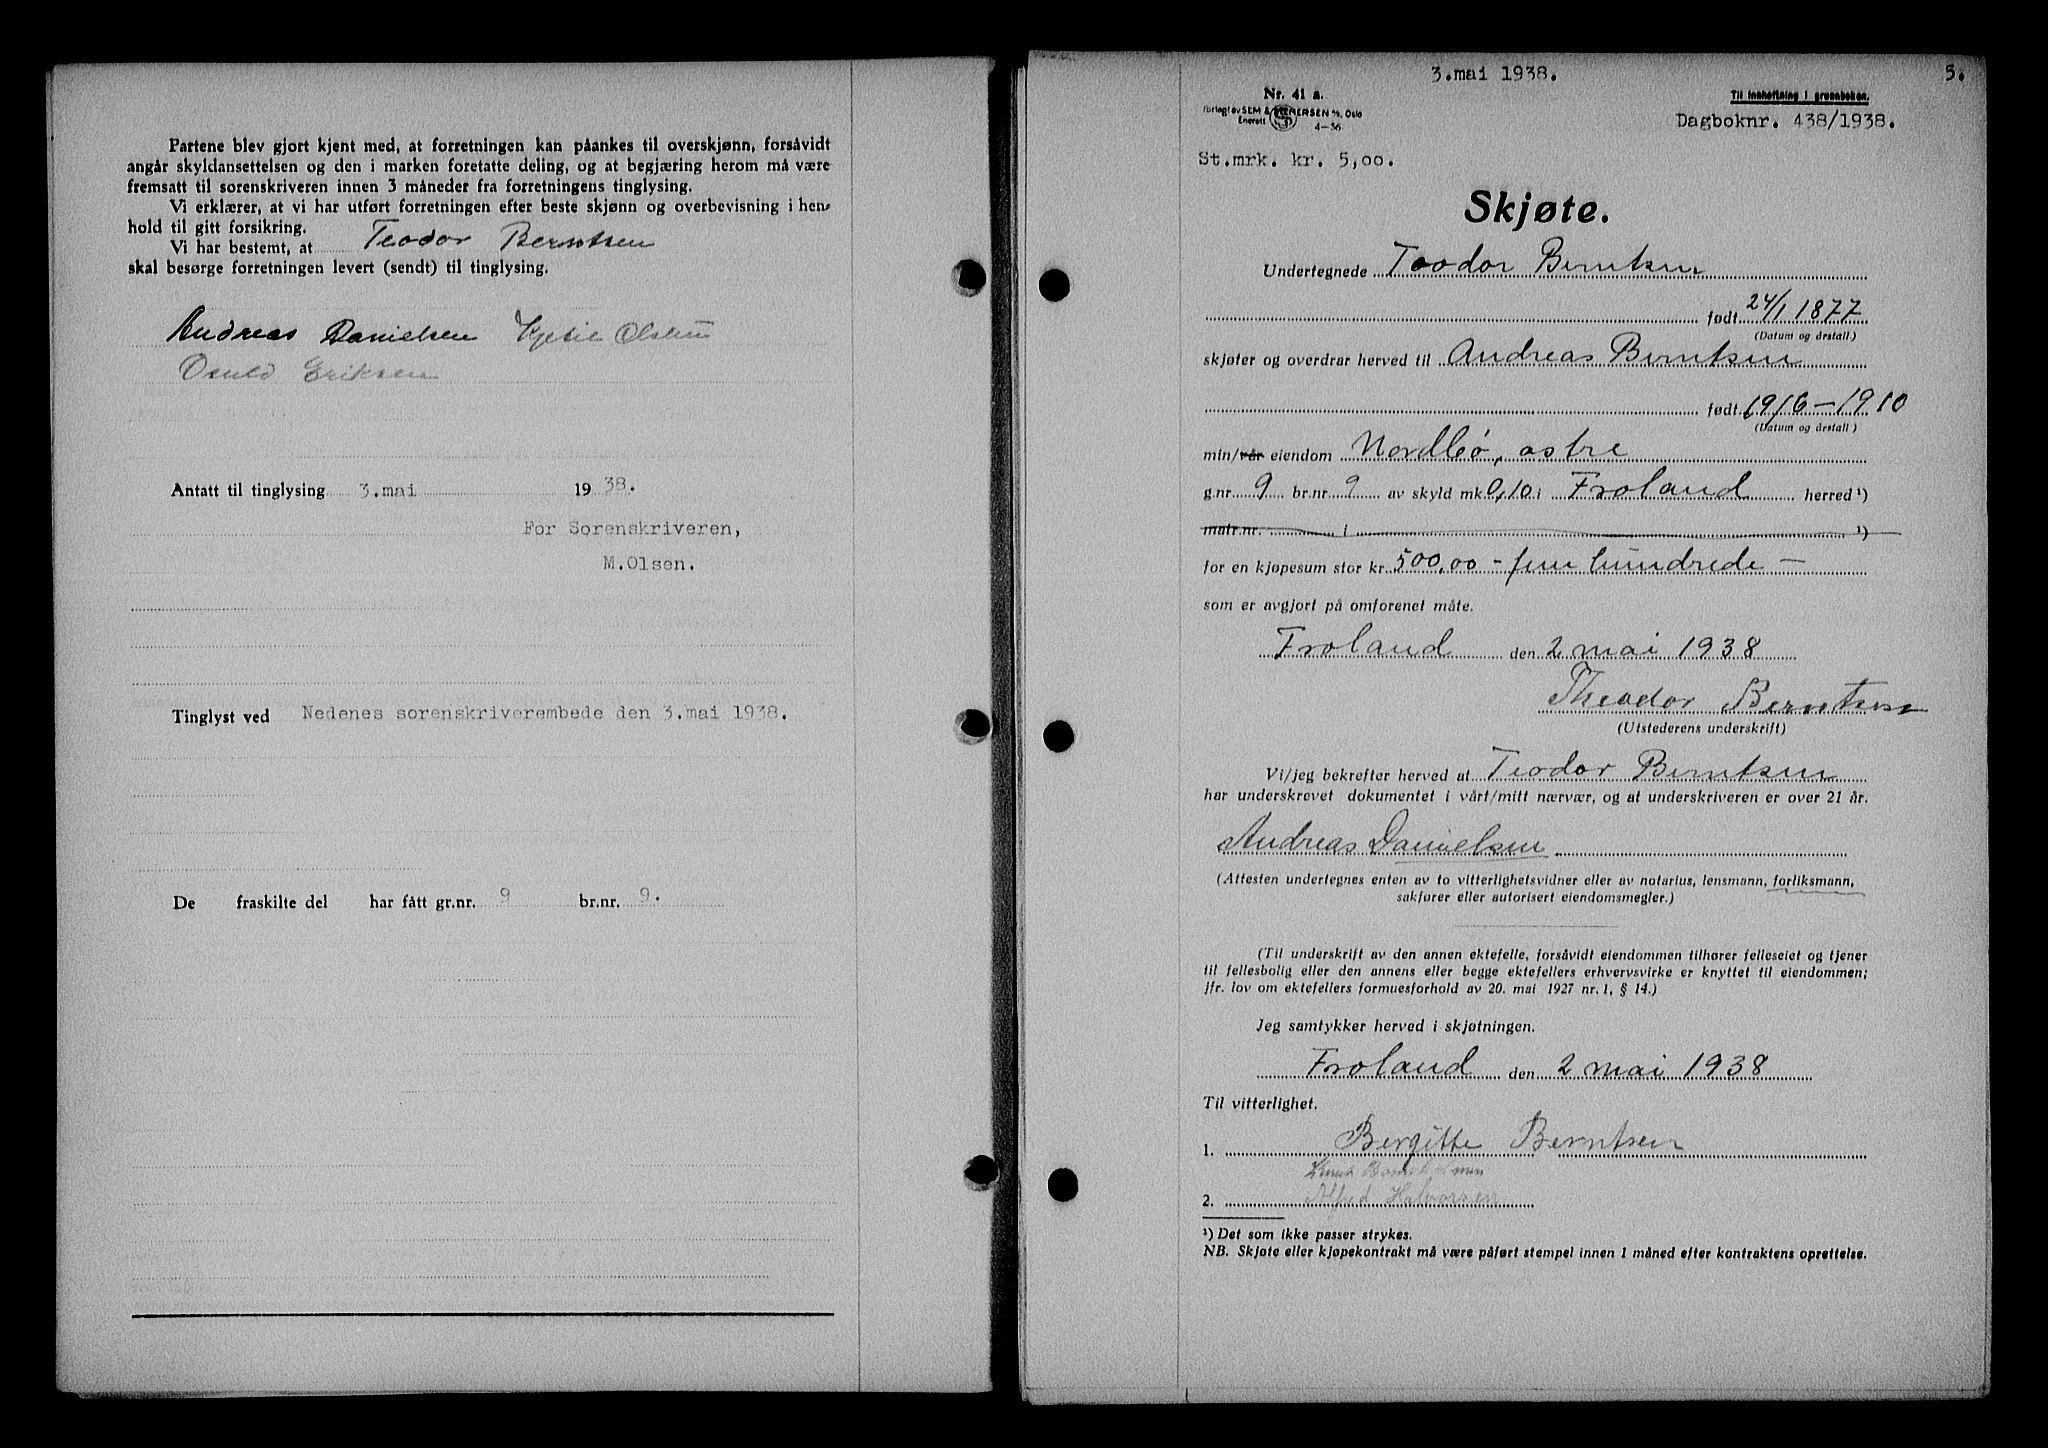 Partene blev gjort kjent med, at forretningen kan påankes til overskjønn, forsåvidt
angår skyldansettelsen og den i marken foretatte deling, og at begjæring herom må være
fremsatt til sorenskriveren innen 3 måneder fra forretningens tinglysing.
Vi erklærer, at vi har utført forretningen efter beste skjønn og overbevisning i hen-
hold til gitt forsikring.
Vi har bestemt, at Teodor Berntsen
skal besørge forretningen levert (sendt) til tinglysing.
Andreas Danielsen Kjetil Olsen
Osuld Eriksen
Antatt til tinglysing 3.mai 1938.
For Sorenskriveren,
M.Olsen.
Tinglyst ved Nedenes sorenskriverembede den 3.mai 1938.
De fraskilte del har fått gr.nr. 9 br.nr. 9.
3.mai 1938. 5.
Nr. 41 a. Til innheftning i grunnboken.
Forlagt av SEM & STENERSEN A/S, Oslo
Enerett 4-36
Dagboknr. 438/1938.
St.mrk. kr. 5,00.
Skjøte.
Undertegnede Teodor Berntsen
født 24/1 1877
(Datum og årstall.)
skjøter og overdrar herved til Andreas Berntsen
født 19/6-1910
(Datum og årstall)
min/vår eiendom Nordbø, østre
g.nr. 9 br.nr. 9 av skyld mk. 0,10 i Froland herred ¹)
matr.nr. i ¹)
for en kjøpesum stor kr. 500,00 - fem hundrede -
som er avgjort på omforenet måte.
Froland den 2 mai 1938
Theodor Berntsen
(Utstederens underskrift)
Vi/jeg bekrefter herved at Teodor Berntsen
har underskrevet dokumentet i vårt/mitt nærvær, og at underskriveren er over 21 år.
Andreas Danielsen
(Attesten undertegnes enten av to vitterlighetsvidner eller av notarius, lensmann, forliksmann,
sakfører eller autorisert eiendomsmegler.)
(Til underskrift av den annen ektefelle, forsåvidt eiendommen tilhører felleseiet og tjener
til fellesbolig eller den annens eller begge ektefellers erhvervsvirke er knyttet til eiendommen;
jfr. lov om ektefellers formuesforhold av 20. mai 1927 nr. 1, § 14.)
Jeg samtykker herved i skjøtningen.
Froland den 2 mai 1938
Til vitterlighet.
1. Bergitte Berntsen
2. Alfred Halvorsen
¹) Det som ikke passer strykes.
NB. Skjøte eller kjøpekontrakt må være påført stempel innen 1 måned efter kontraktens oprettelse.